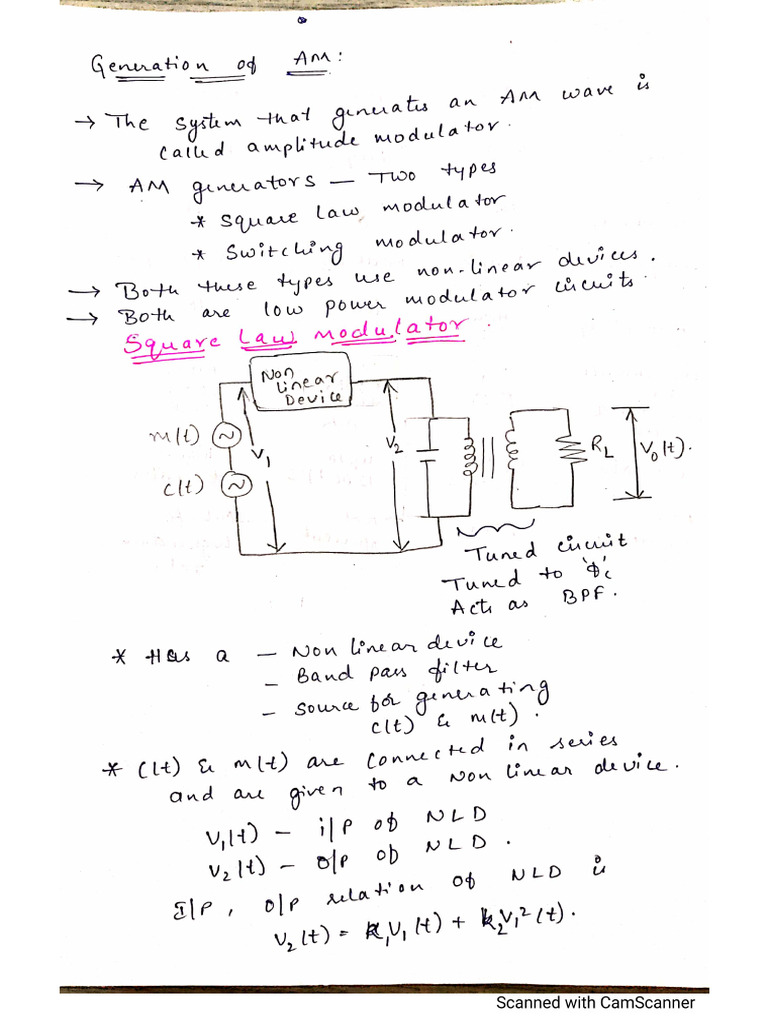 Generation of AM:
→ The system that generates an AM wave is
called amplitude modulator.
→ AM generators — Two types
* Square Law modulator
* Switching modulator.
→ Both these types use non-linear devices.
→ Both are low power modulator circuits.
Square Law Modulator.
Non
Linear
Device
m(t)
c(t)
V₁
V₂
R_L
V₀(t).
Tuned circuit
Tuned to 'f_c'
Acts as BPF.
* Has a — Non linear device
— Band pass filter
— Source for generating
c(t) & m(t).
* C(t) & m(t) are connected in series
and are given to a Non linear device.
V₁(t) — i/p of NLD
V₂(t) — o/p of NLD.
I/P, O/P relation of NLD is
V₂(t) = k₁V₁(t) + k₂V₁²(t).
Scanned with CamScanner